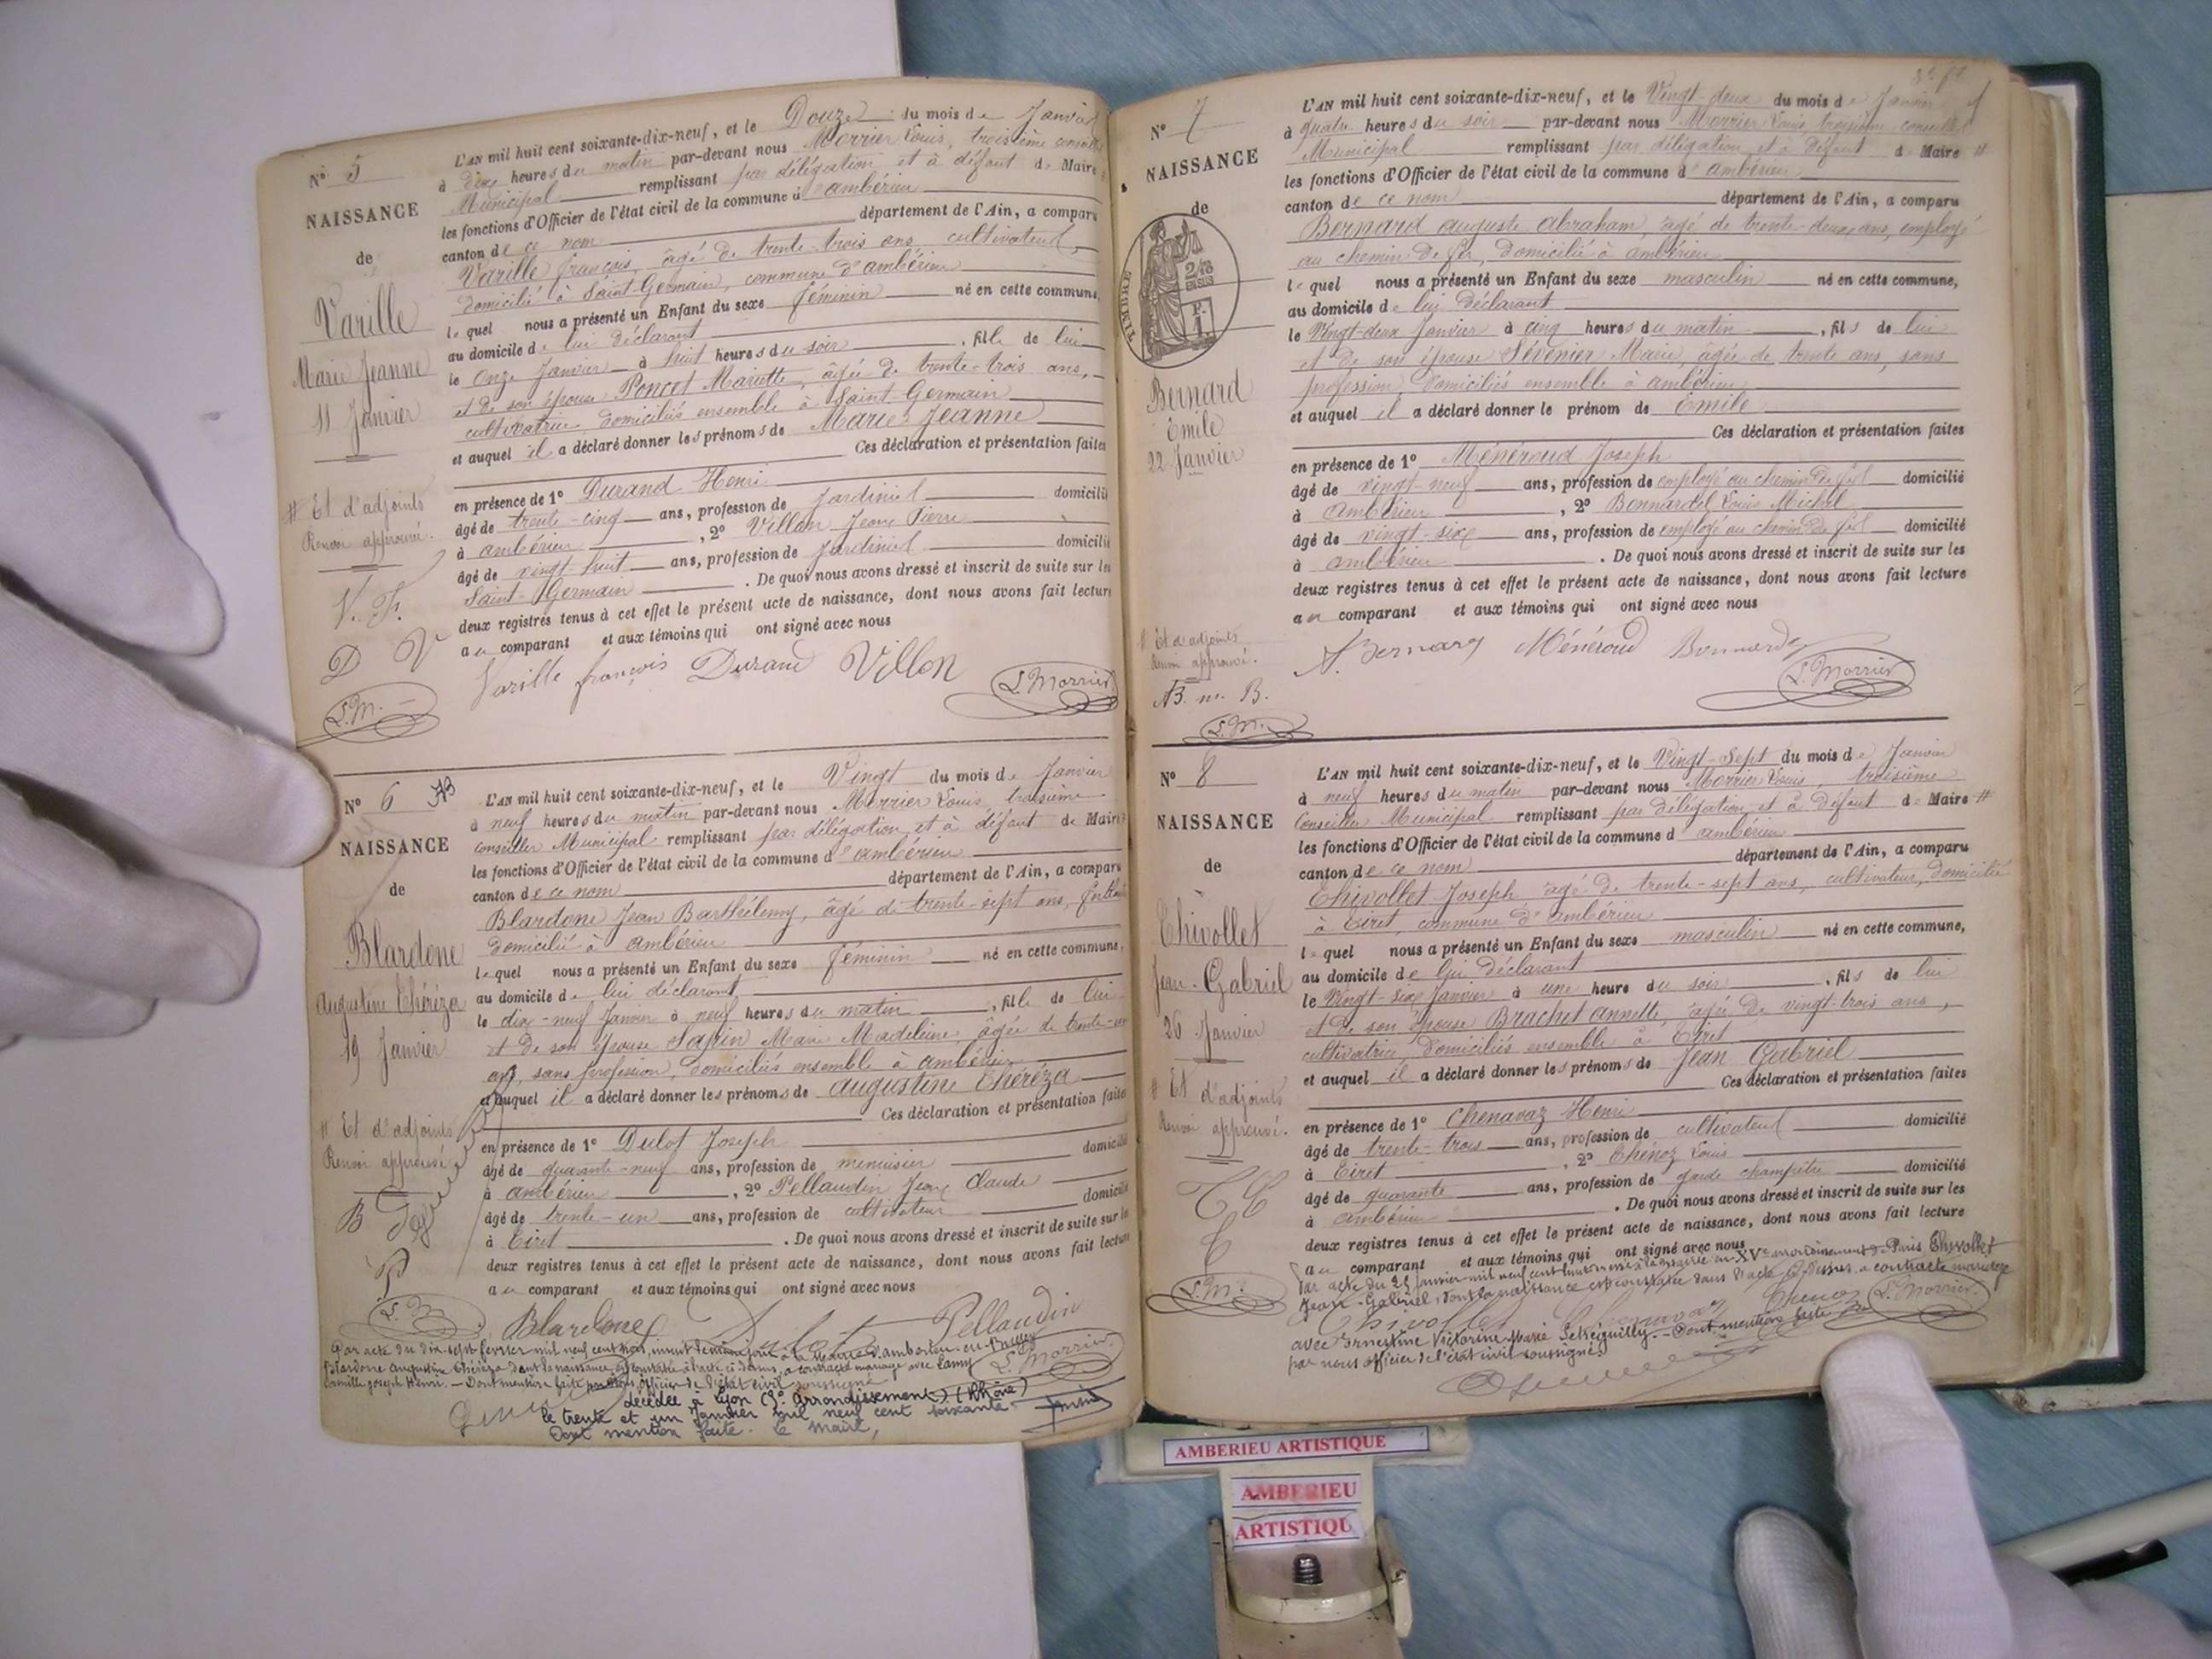 Nº 5
NAISSANCE
de
Varille
Marie Jeanne
11 Janvier
# Et d'adjoints
Renvoi approuvé.
V. F.
D V
L.M.
L'AN mil huit cent soixante-dix-neuf, et le Douze du mois de Janvier
à dix heures du matin par-devant nous Morrier Louis, troisième conseiller
Municipal remplissant par délégation et à défaut de Maire #
les fonctions d'Officier de l'état civil de la commune d'ambérieu
canton de ce nom département de l'Ain, a comparu
Varille françois, âgé de trente-trois ans, cultivateur,
domicilié à Saint-Germain, commune d'ambérieu
lequel nous a présenté un Enfant du sexe féminin né en cette commune,
au domicile de lui déclarant
le onze Janvier à huit heures du soir, fille de lui
et de son épouse Poncet Mariette, âgée de trente-trois ans,
cultivatrice, domiciliés ensemble à Saint-Germain
et auquel il a déclaré donner les prénoms de Marie Jeanne
Ces déclaration et présentation faites
en présence de 1º Durand Henri
âgé de trente-cinq ans, profession de Jardinier domicilié
à ambérieu, 2º Villon Jean Pierre
âgé de vingt-huit ans, profession de Jardinier domicilié
Saint-Germain. De quoi nous avons dressé et inscrit de suite sur les
deux registres tenus à cet effet le présent acte de naissance, dont nous avons fait lecture
au comparant et aux témoins qui ont signé avec nous
Varille françois Durand Villon L. Morrier
Nº 6
NAISSANCE
de
Blardone
Augustine Théréza
19 Janvier
# Et d'adjoints
Renvoi approuvé
B
P
L.M
L'AN mil huit cent soixante-dix-neuf, et le Vingt du mois de Janvier
à neuf heures du matin par-devant nous Morrier Louis, troisième
conseiller Municipal remplissant par délégation et à défaut de Maire #
les fonctions d'Officier de l'état civil de la commune d'ambérieu
canton de ce nom département de l'Ain, a comparu
Blardone Jean Barthélemy, âgé de trente-sept ans,
domicilié à ambérieu
lequel nous a présenté un Enfant du sexe féminin né en cette commune,
au domicile de lui déclarant
le dix-neuf Janvier à neuf heures du matin, fille de lui
et de son épouse Marie Madeleine, âgée de trente-un
ans, sans profession, domiciliés ensemble à ambérieu
et auquel il a déclaré donner les prénoms de augustine Théréza
Ces déclaration et présentation faites
en présence de 1º Dulot Joseph
âgé de quarante-neuf ans, profession de menuisier domicilié
à ambérieu, 2º Pellaudin Jean Claude
âgé de trente-un ans, profession de cultivateur domicilié
à Tiret. De quoi nous avons dressé et inscrit de suite sur les
deux registres tenus à cet effet le présent acte de naissance, dont nous avons fait lecture
au comparant et aux témoins qui ont signé avec nous
Blardone Dulot Pellaudin
L. Morrier
Par acte du dix-sept février mil neuf cent à la mairie d'ambérieu-en-Bugey
Blardone augustine Théréza dont la naissance est constatée à l'acte ci-dessus, a contracté mariage avec
Camille Joseph Henri. — Dont mention faite par nous Officier de l'état civil soussigné
décédée à Lyon (3e arrondissement) (Rhône)
le trente et un Janvier mil neuf cent soixante
Dont mention faite. Le Maire,
Nº 7
NAISSANCE
de
TIMBRE
Bernard
Emile
22 Janvier
# Et d'adjoints
Renvoi approuvé.
AB. m. B.
L.M.
L'AN mil huit cent soixante-dix-neuf, et le Vingt-deux du mois de Janvier
à quatre heures du soir par-devant nous Morrier Louis, troisième conseiller
Municipal remplissant par délégation et à défaut de Maire #
les fonctions d'Officier de l'état civil de la commune d'ambérieu
canton de ce nom département de l'Ain, a comparu
Bernard auguste abraham, âgé de trente-deux ans, employé
au chemin de fer, domicilié à ambérieu
lequel nous a présenté un Enfant du sexe masculin né en cette commune,
au domicile de lui déclarant
le Vingt-deux Janvier à cinq heures du matin, fils de lui
et de son épouse Sévenier Marie, âgée de trente ans, sans
profession, domiciliés ensemble à ambérieu
et auquel il a déclaré donner le prénom de Emile
Ces déclaration et présentation faites
en présence de 1º Ménéroud Joseph
âgé de vingt-neuf ans, profession de employé au chemin de fer domicilié
à Ambérieu, 2º Bonnardel Louis Michel
âgé de vingt-six ans, profession de employé au chemin de fer domicilié
à ambérieu. De quoi nous avons dressé et inscrit de suite sur les
deux registres tenus à cet effet le présent acte de naissance, dont nous avons fait lecture
au comparant et aux témoins qui ont signé avec nous
A. Bernard Ménéroud Bonnardel
L. Morrier
Nº 8
NAISSANCE
de
Thivollet
Jean-Gabriel
26 Janvier
# Et d'adjoints
Renvoi approuvé.
L.M.
L'AN mil huit cent soixante-dix-neuf, et le Vingt-Sept du mois de Janvier
à neuf heures du matin par-devant nous Morrier Louis, troisième
Conseiller Municipal remplissant par délégation et à défaut de Maire #
les fonctions d'Officier de l'état civil de la commune d'ambérieu
canton de ce nom département de l'Ain, a comparu
Thivollet Joseph âgé de trente-sept ans, cultivateur, domicilié
à Tiret, commune d'ambérieu
lequel nous a présenté un Enfant du sexe masculin né en cette commune,
au domicile de lui déclarant
le Vingt-six Janvier à une heure du soir, fils de lui
et de son épouse Brachet annette, âgée de vingt-trois ans,
cultivatrice, domiciliés ensemble à Tiret
et auquel il a déclaré donner les prénoms de Jean Gabriel
Ces déclaration et présentation faites
en présence de 1º Chenavaz Henri
âgé de trente-trois ans, profession de cultivateur domicilié
à Tiret, 2º Thénoz Louis
âgé de quarante ans, profession de garde champêtre domicilié
à ambérieu. De quoi nous avons dressé et inscrit de suite sur les
deux registres tenus à cet effet le présent acte de naissance, dont nous avons fait lecture
au comparant et aux témoins qui ont signé avec nous
Par acte du 25 Janvier mil neuf cent à la mairie du XVe arrondissement de Paris Thivollet
Jean-Gabriel, dont la naissance est constatée dans l'acte ci-dessus, a contracté mariage
Thivollet Chenavaz Thenoz L. Morrier
avec Ernestine Victorine Marie — Dont mention faite
par nous officier de l'état civil soussigné.
AMBERIEU ARTISTIQUE
AMBERIEU
ARTISTIQU